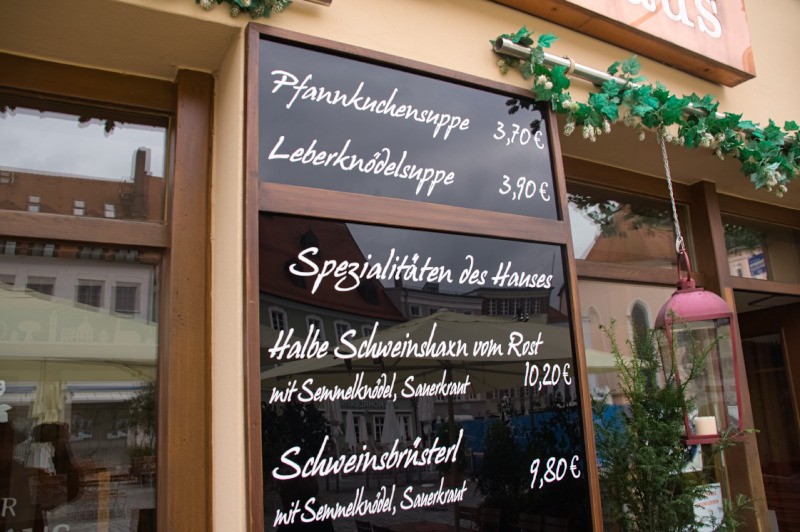 Pfannkuchensuppe 3,70 €
Leberknödelsuppe 3,90 €
Spezialitäten des Hauses
Halbe Schweinshaxn vom Rost
mit Semmelknödel, Sauerkraut 10,20 €
Schweinsbrüsterl
mit Semmelknödel, Sauerkraut 9,80 €